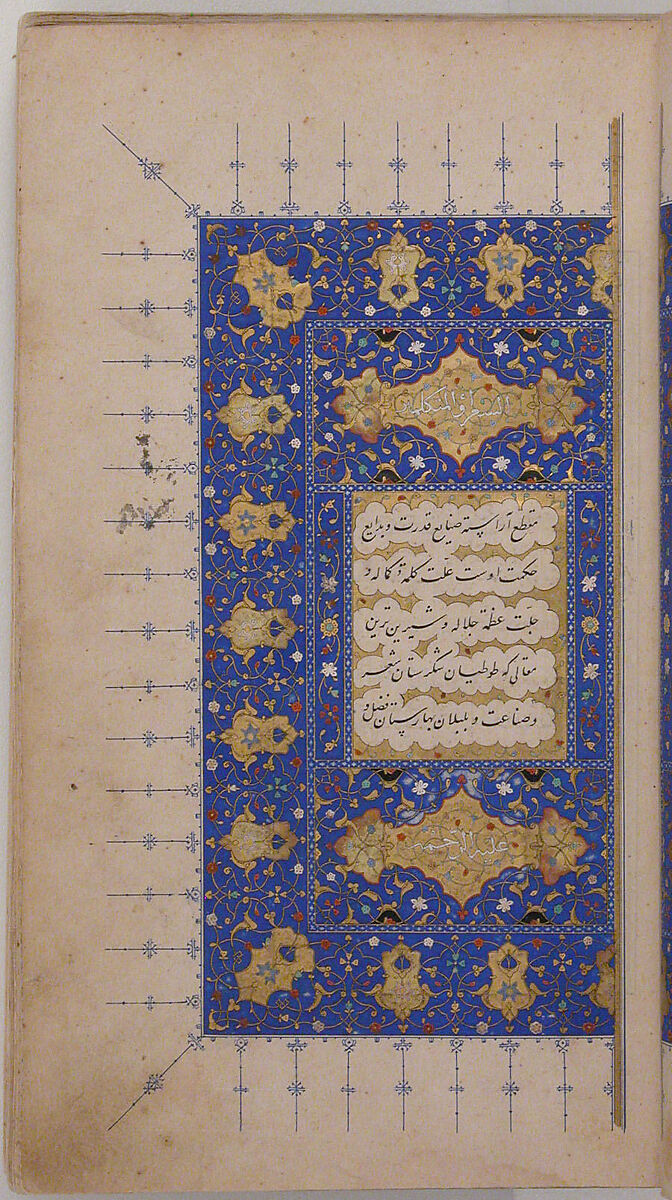 الشعراء والمتکلمین
مقطع آراسته صنایع قدرت و بدایع
حکمت اوست علّت کلمة کماله
جلّت عظمة جلاله و شیرین ترین
مقالی که طوطیان شکرستان شعر
و صناعت و بلبلان بهارستان فضل و
علیه الرحمه